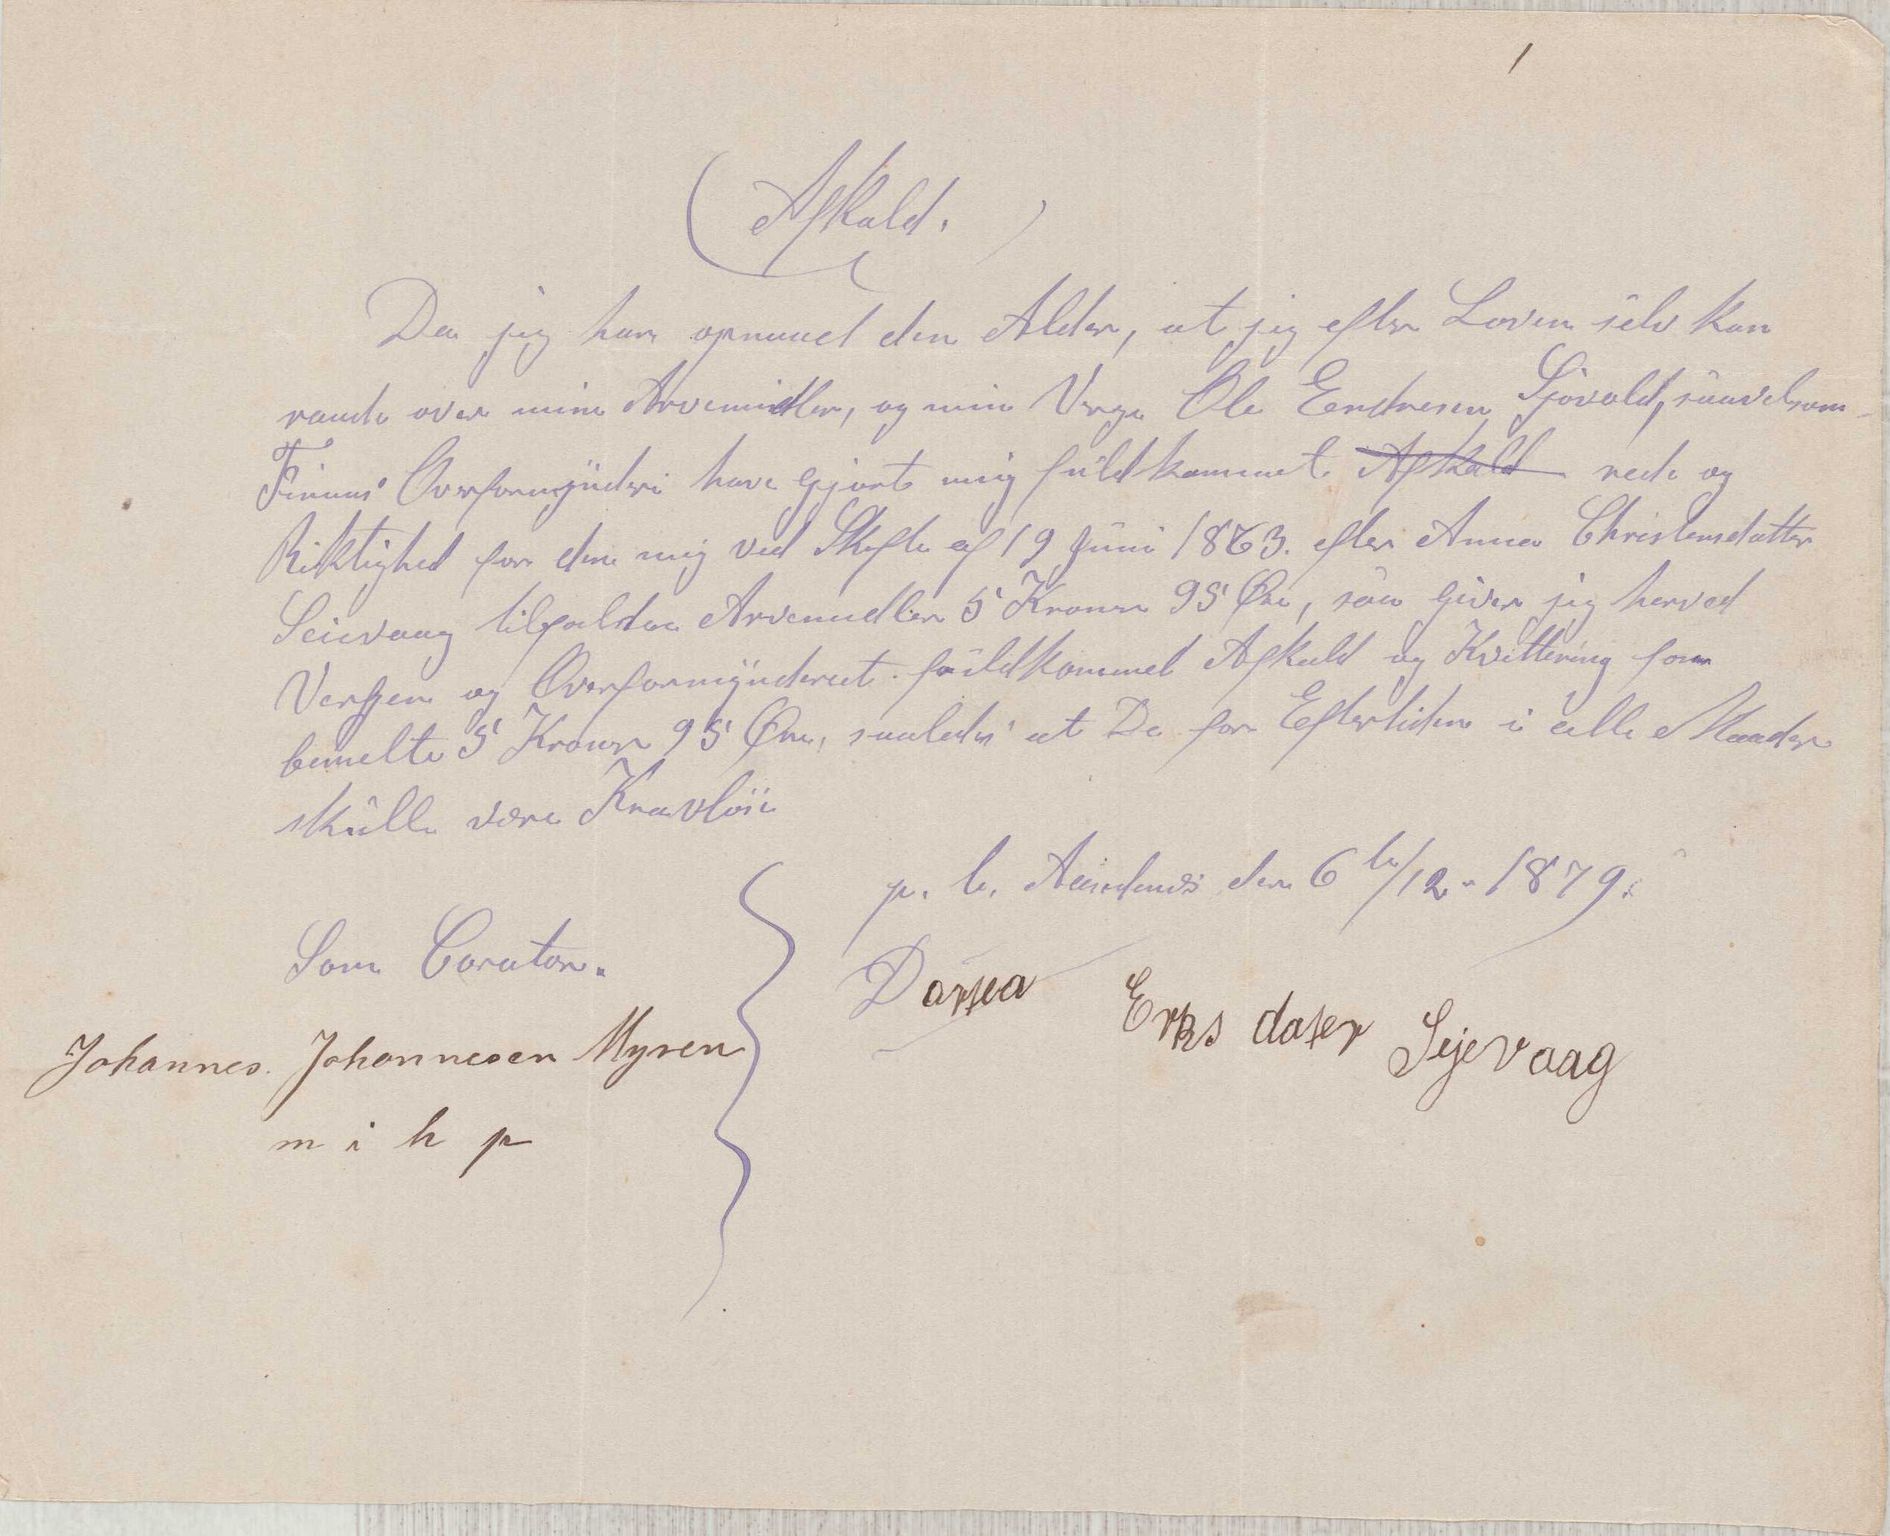 1
Afkald.
Da jeg har opnaaet den Alder, at jeg efter Loven selv kan
raade over mine Arvemidler, og min Verge Ole Endresen Sjövold, saavelsom
Finnas Overformynderi have gjort mig fuldkommet Afkald rede og
Riktighed for den mig ved Skifte af 19 Juni 1863. efter Anna Christensdatter
Seievaag tilfaldne Arvemidler 5 Kroner 95 Øre, saa giver jeg herved
Vergen og Overformynderiet fuldkommed Afkald og Kvittering for
bemelte 5 Kroner 95 Øre, saaledes at De for Eftertiden i alle Maader
skulle være Kravløse
p. t. den 6te/12 - 1879.
Som Curator.
Dortea Eriksdater Sejevaag
Johannes. Johannesen Myren
m i h p